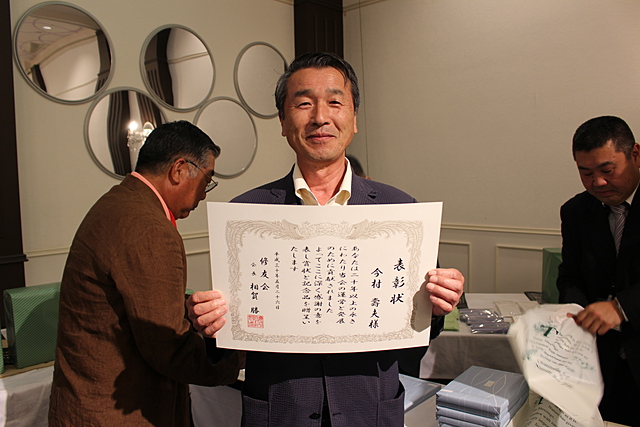 表彰状
今村 壽夫様
あなたは二十年以上の永き
にわたり当会の運営と発展
のために貢献されました
よってここに深く感謝の意を
表し賞状と記念品を贈呈い
たします
平成三十年五月二十六日
修友会
会長 相賀 勝